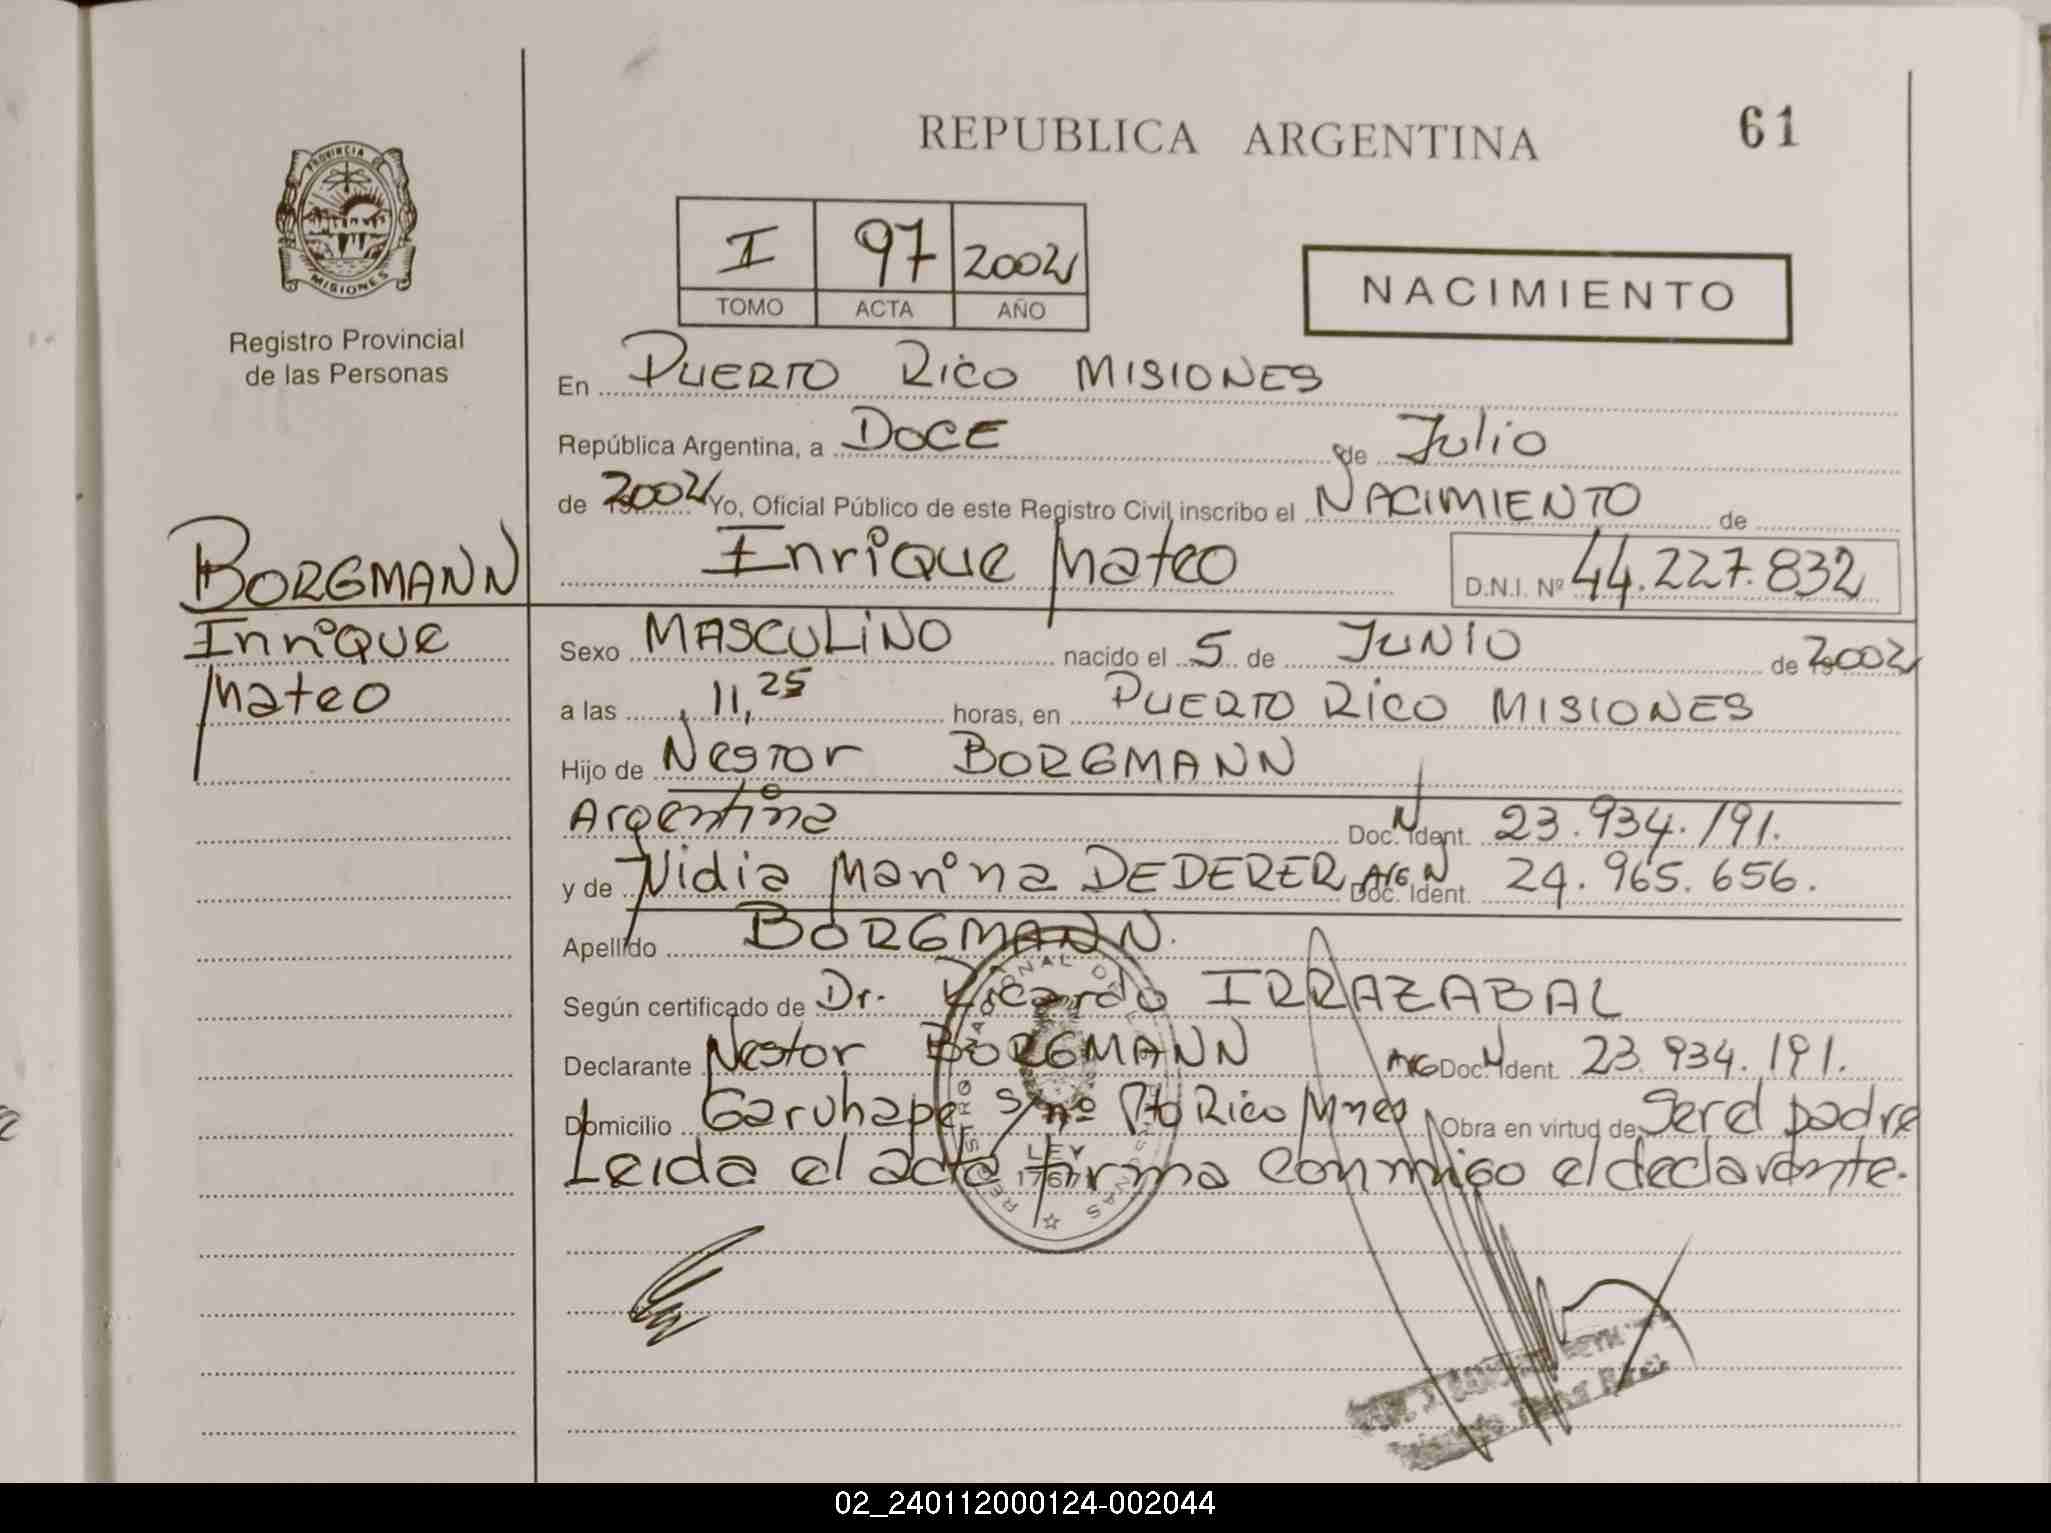 REPUBLICA ARGENTINA
61
PROVINCIA DE
MISIONES
Registro Provincial
de las Personas
I 97 2002
TOMO ACTA AÑO
NACIMIENTO
En PUERTO RICO MISIONES
República Argentina, a DOCE de Julio
de 2002 Yo, Oficial Público de este Registro Civil inscribo el NACIMIENTO de
Enrique Mateo D.N.I. Nº 44.227.832
BORGMANN
Enrique
Mateo
Sexo MASCULINO nacido el 5 de JUNIO de 2002
a las 11,25 horas, en PUERTO RICO MISIONES
Hijo de Nestor BORGMANN
Argentina Doc. N Ident. 23.934.191.
y de Nidia Marina DEDERER Arg N Doc. Ident. 24.965.656.
Apellido BORGMANN.
Según certificado de Dr. Ricardo IRRAZABAL
Declarante Nestor BORGMANN Arg Doc. N Ident. 23.934.191.
Domicilio Garuhape s/nº Pto Rico Mnes Obra en virtud de Ser el padre
Leida el acta firma conmigo el declarante.
LEY
17671
02_240112000124-002044